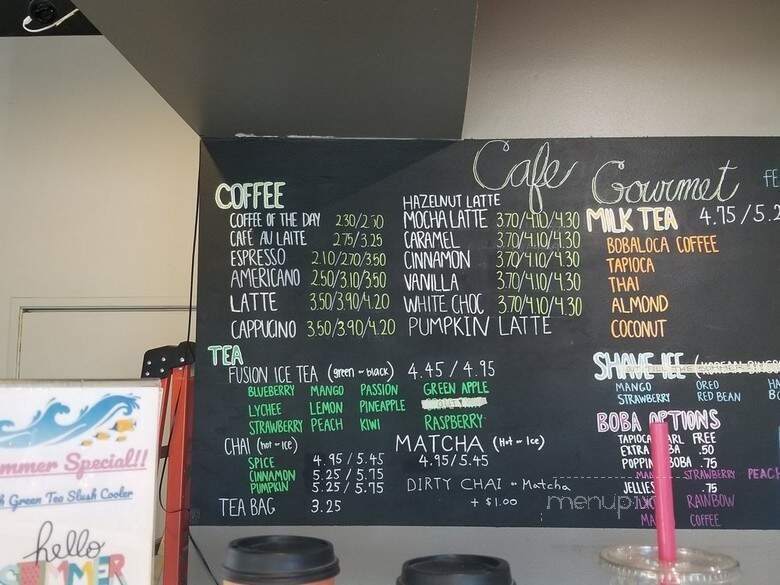 Cafe Gourmet
COFFEE
COFFEE OF THE DAY 2.30/2.50
CAFÉ AU LAITE 2.75/3.25
ESPRESSO 2.10/2.70/3.50
AMERICANO 2.50/3.10/3.50
LATTE 3.50/3.90/4.20
CAPPUCINO 3.50/3.90/4.20
HAZELNUT LATTE
MOCHA LATTE 3.70/4.10/4.30
CARAMEL 3.70/4.10/4.30
CINNAMON 3.70/4.10/4.30
VANILLA 3.70/4.10/4.30
WHITE CHOC 3.70/4.10/4.30
PUMPKIN LATTE
MILK TEA 4.75/5.2
BOBALOCA COFFEE
TAPIOCA
THAI
ALMOND
COCONUT
TEA
FUSION ICE TEA (green - black) 4.45/4.95
BLUEBERRY MANGO PASSION GREEN APPLE
LYCHEE LEMON PINEAPPLE
STRAWBERRY PEACH KIWI RASPBERRY
CHAI (hot - ice)
SPICE 4.95/5.45
CINNAMON 5.25/5.75
PUMPKIN 5.25/5.75
TEA BAG 3.25
MATCHA (Hot - Ice)
4.95/5.45
DIRTY CHAI - Matcha
+ $1.00
SHAVE ICE
MANGO OREO
STRAWBERRY RED BEAN
BOBA OPTIONS
TAPIOCA FREE
EXTRA .50
POPPIN BOBA .75
STRAWBERRY PEACH
JELLIES .75
RAINBOW
COFFEE
mmer Special!!
h Green Tea Slush Cooler
hello
SUMMER
menup